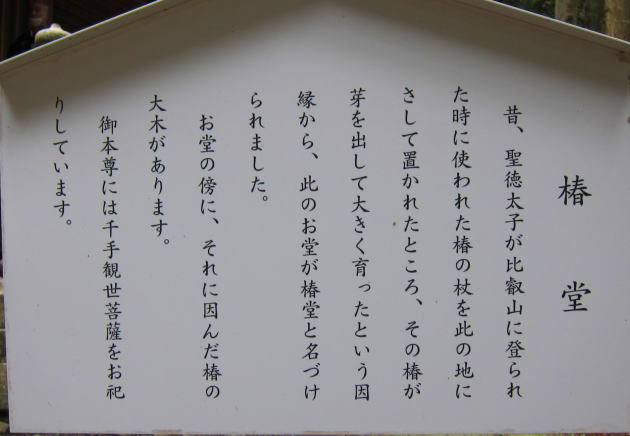 椿堂
昔、聖徳太子が比叡山に登られ
た時に使われた椿の杖を此の地に
さして置かれたところ、その椿が
芽を出して大きく育ったという因
縁から、此のお堂が椿堂と名づけ
られました。
お堂の傍に、それに因んだ椿の
大木があります。
御本尊には千手観世菩薩をお祀
りしています。